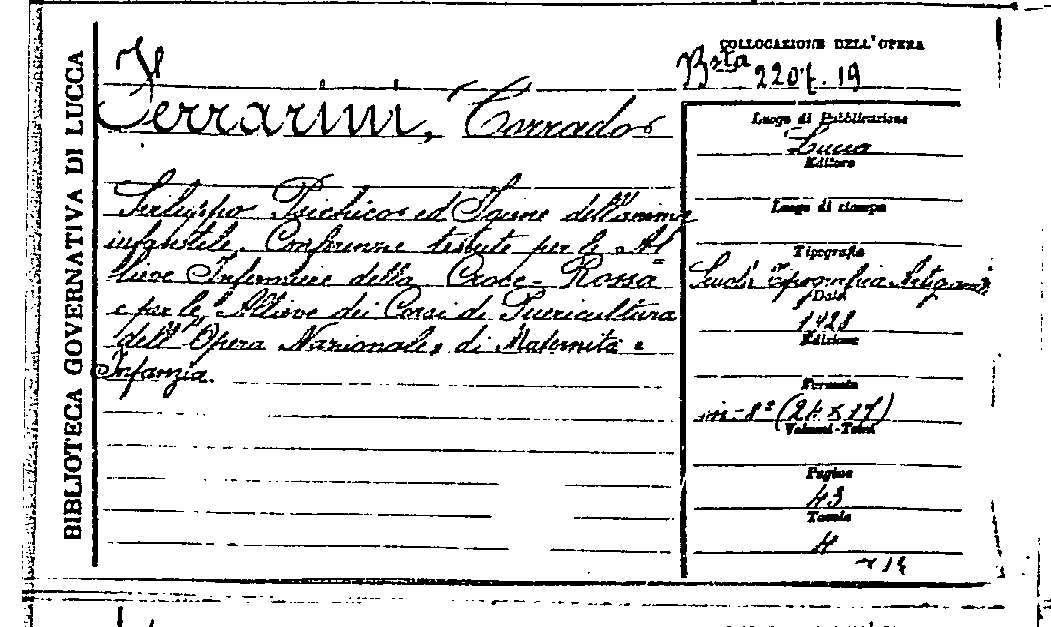 BIBLIOTECA GOVERNATIVA DI LUCCA
COLLOCAZIONE DELL'OPERA
Bsta 2207.19
Ferrarini, Corrado
Sviluppo Psichico ed Igiene dell'anima
infantile. Conferenze tenute per le Al
lieve Infermiere della Croce-Rossa
e per le Allieve dei Corsi di Puericultura
dell'Opera Nazionale di Maternità e
Infanzia.
Luogo di Pubblicazione
Lucca
Editore
Luogo di stampa
Tipografia
Tipografia
Data
1928
Edizione
Formato
in-8º (24 x 17)
Volumi-Tomi
Pagine
43
Tavole